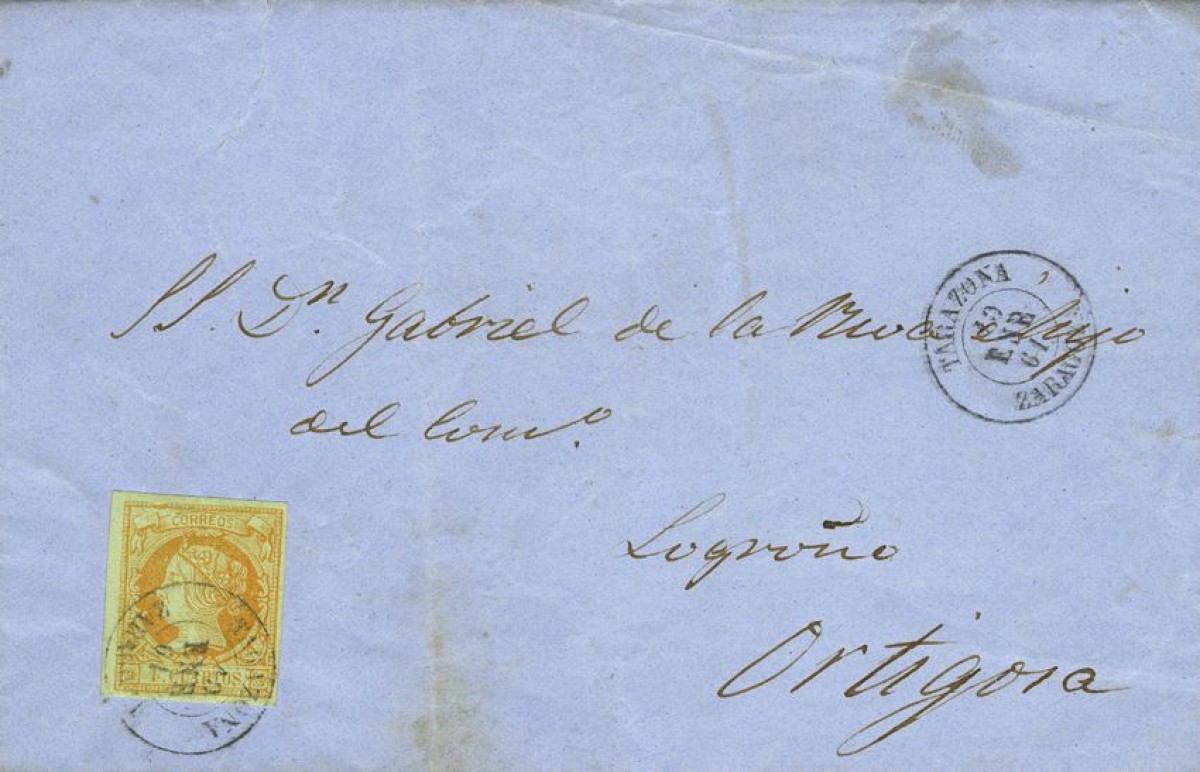 SS. Dn. Gabriel de la Riva é hijo
del Como.
Logroño
Ortigosa
TARAZONA
10
ENE
61
ZARAG
CORREOS
CUARTOS